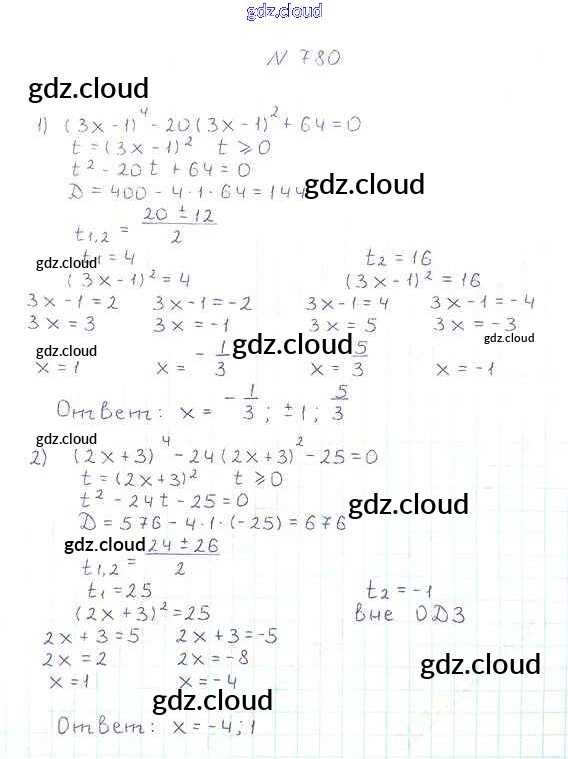 gdz.cloud
N 780
gdz.cloud
1) (3x-1)^4-20(3x-1)^2+64=0
t=(3x-1)^2 t⩾0
t^2-20t+64=0
D=400-4·1·64=144
gdz.cloud
t1,2 = (20±12)/2
gdz.cloud
t1=4 t2=16
(3x-1)^2=4 (3x-1)^2=16
3x-1=2 3x-1=-2 3x-1=4 3x-1=-4
3x=3 3x=-1 3x=5 3x=-3
gdz.cloud gdz.cloud gdz.cloud
x=1 x=-1/3 x=5/3 x=-1
Ответ: x=-1/3; ±1; 5/3
gdz.cloud
2) (2x+3)^4-24(2x+3)^2-25=0
t=(2x+3)^2 t⩾0
t^2-24t-25=0
gdz.cloud
D=576-4·1·(-25)=676
gdz.cloud
t1,2 = (24±26)/2
t1=25 t2=-1
(2x+3)^2=25 вне ОДЗ
2x+3=5 2x+3=-5
2x=2 2x=-8
gdz.cloud
x=1 x=-4
gdz.cloud
Ответ: x=-4;1